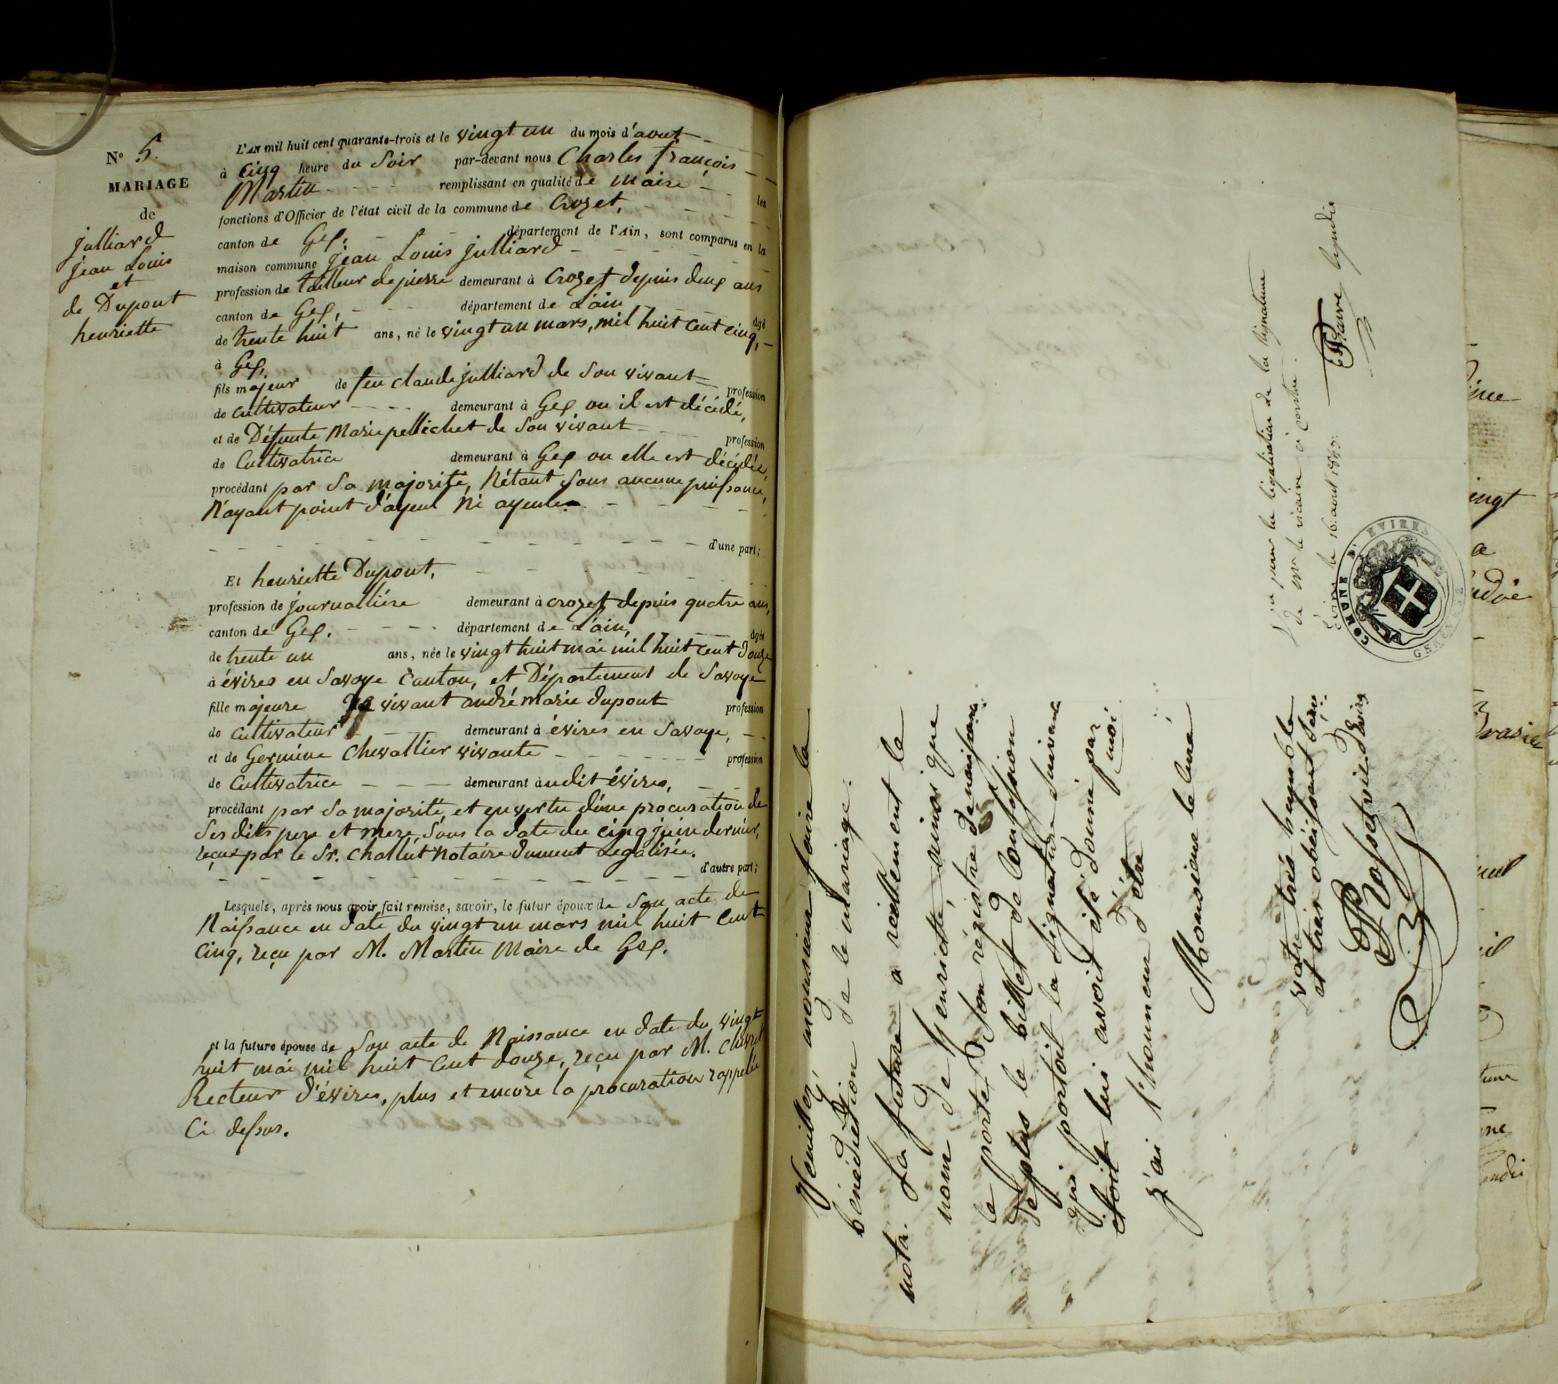 N° 5.
MARIAGE
de
julliard
jean Louis
et
de Dupont
henriette
L'an mil huit cent quarante-trois et le vingt un du mois d'aout
à cinq heure du soir par-devant nous Charles françois
Martin remplissant en qualité de maire les
fonctions d'Officier de l'état civil de la commune de Crozet,
canton de Gex, département de l'Ain, sont comparus en la
maison commune jean Louis julliard
profession de tailleur de pierre demeurant à Crozet depuis deux ans
canton de Gex, département de L'ain, âgé
de trente huit ans, né le vingt un mars, mil huit cent cinq,
à Gex.
fils majeur de feu claude julliard de son vivant profession
de cultivateur demeurant à Gex ou il est décédé,
et de Défunte Marie pellichet de son vivant profession
de Cultivatrice demeurant à Gex ou elle est décédée,
procédant par sa majorité, N'étant sous aucune puissance,
N'ayant point d'ayeul Ni ayeule.
d'une part;
Et henriette Dupont,
profession de journallière demeurant à crozet depuis quatre ans,
canton de Gex. département de L'ain, âgée
de trente un ans, née le vingt huit mai mil huit cent douze
à évires en Savoye Canton, et Département de Savoye
fille majeure de vivant andré marie dupont profession
de cultivateur demeurant à évires en Savoye,
et de Germine Chevallier vivante profession
de Cultivatrice demeurant audit évires,
procédant par sa majorité, et en vertu d'une procuration de
ses dits pere et mere, sous la date du cinq juin dernier,
reçue par le Sr. Challut Notaire dument Legalisée.
d'autre part;
Lesquels, après nous avoir fait remise, savoir, le futur époux de son acte de
Naissance en date du vingt un mars mil huit cent
cinq, reçu par M. Martin Maire de Gex.
et la future épouse de son acte de Naissance en date du vingt
huit mai mil huit cent douze, reçu par M.
Recteur d'évires, plus et encore la procuration rappellée
Ci dessus.
Veuillez, monsieur, faire la
bénédiction de le mariage.
nota. La future a réellement le
nom de henriette, ainsi que
le porte son régistre de naissance.
De plus le billet de Confession
qui portoit la signature suivante
etoit lui avoit été donné par
moi.
j'ai l'honneur d'etre
Monsieur le Curé
votre très humble
et très obéissant serv.
Rosset vic. d'Evires
Vu pour la légalisation de la signature
de Mr. le vicaire ci contre.
Evires le 16 aout 1843.
Favre Syndic
COMUNE D'EVIRES